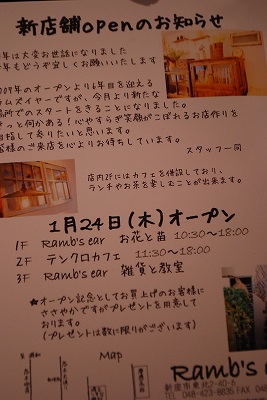 新店舗openのお知らせ
年は大変お世話になりました
年もどうぞ宜しくお願いいたします
009年のオープンより6年目を迎える
ラムズイヤーですが、今月より新たな
場所でのスタートをきることになりました。
きっと何かある！心やすらぎ笑顔がこぼれるお店作りを
目指して参りたいと思います。
皆様のご来店を心よりお待ちしています。
スタッフ一同
店内2Fにはカフェを併設しており、
ランチやお茶を楽しむことが出来ます。
1月24日(木)オープン
1F Ramb's ear お花と苗 10:30~18:00
2F テンクロカフェ 11:30~18:00
3F Ramb's ear 雑貨と教室
★オープン記念としてお買上げのお客様に
ささやかですがプレゼントを用意して
おります。
(プレゼントは数に限りがございます)
Map
Ramb's e
新座市東北2-40-6
TEL 048-423-8835 FAX 048